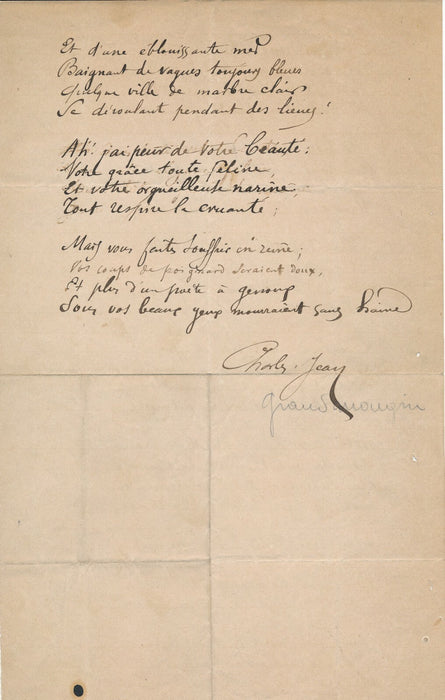 Et d'une éblouissante mer
Baignant de vagues toujours bleues
Quelque ville de marbre clair
Se déroulant pendant des lieues!
Ah! j'ai peur de votre beauté:
Votre grâce toute féline,
Et votre orgueilleuse narine,
Tout respire la cruauté;
Mais vous faites souffrir en reine;
Vos coups de poignard seraient doux,
Et plus d'un poète à genoux
Sous vos beaux yeux mourraient sans haine
Charles. Jean
Grandmougin